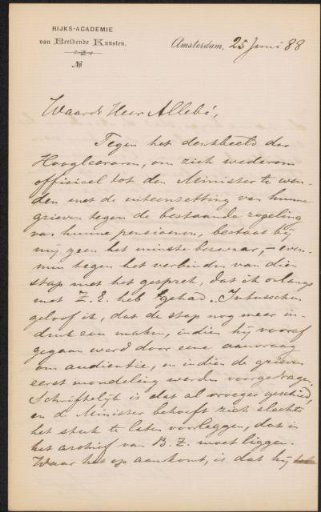 RIJKS-ACADEMIE
van Beeldende Kunsten.
№
Amsterdam, 25 Juni 88
Waarde Heer Allebé,
Tegen het denkbeeld der
Hoogleeraren, om zich wederom
officieel tot den Minister te wen-
den met de uiteenzetting van hunne
grieven tegen de bestaande regeling
van hunne pensioenen, bestaat bij
mij geen het minste bezwaar, – even-
min tegen het verbinden van dien
stap met het gesprek, dat ik onlangs
met Z.E. heb gehad. Intusschen
geloof ik, dat de stap nog meer in-
druk zou maken, indien hij vooraf
gegaan werd door eene aanvrage
om audientie, en indien de grieven
eerst mondeling werden voorgedragen.
Schriftelijk is dat al vroeger geschied,
en de Minister behoeft zich slechts
het stuk te laten voorleggen, dat in
het archief van B.Z. moet liggen.
Waar het op aankomt, is dat hij